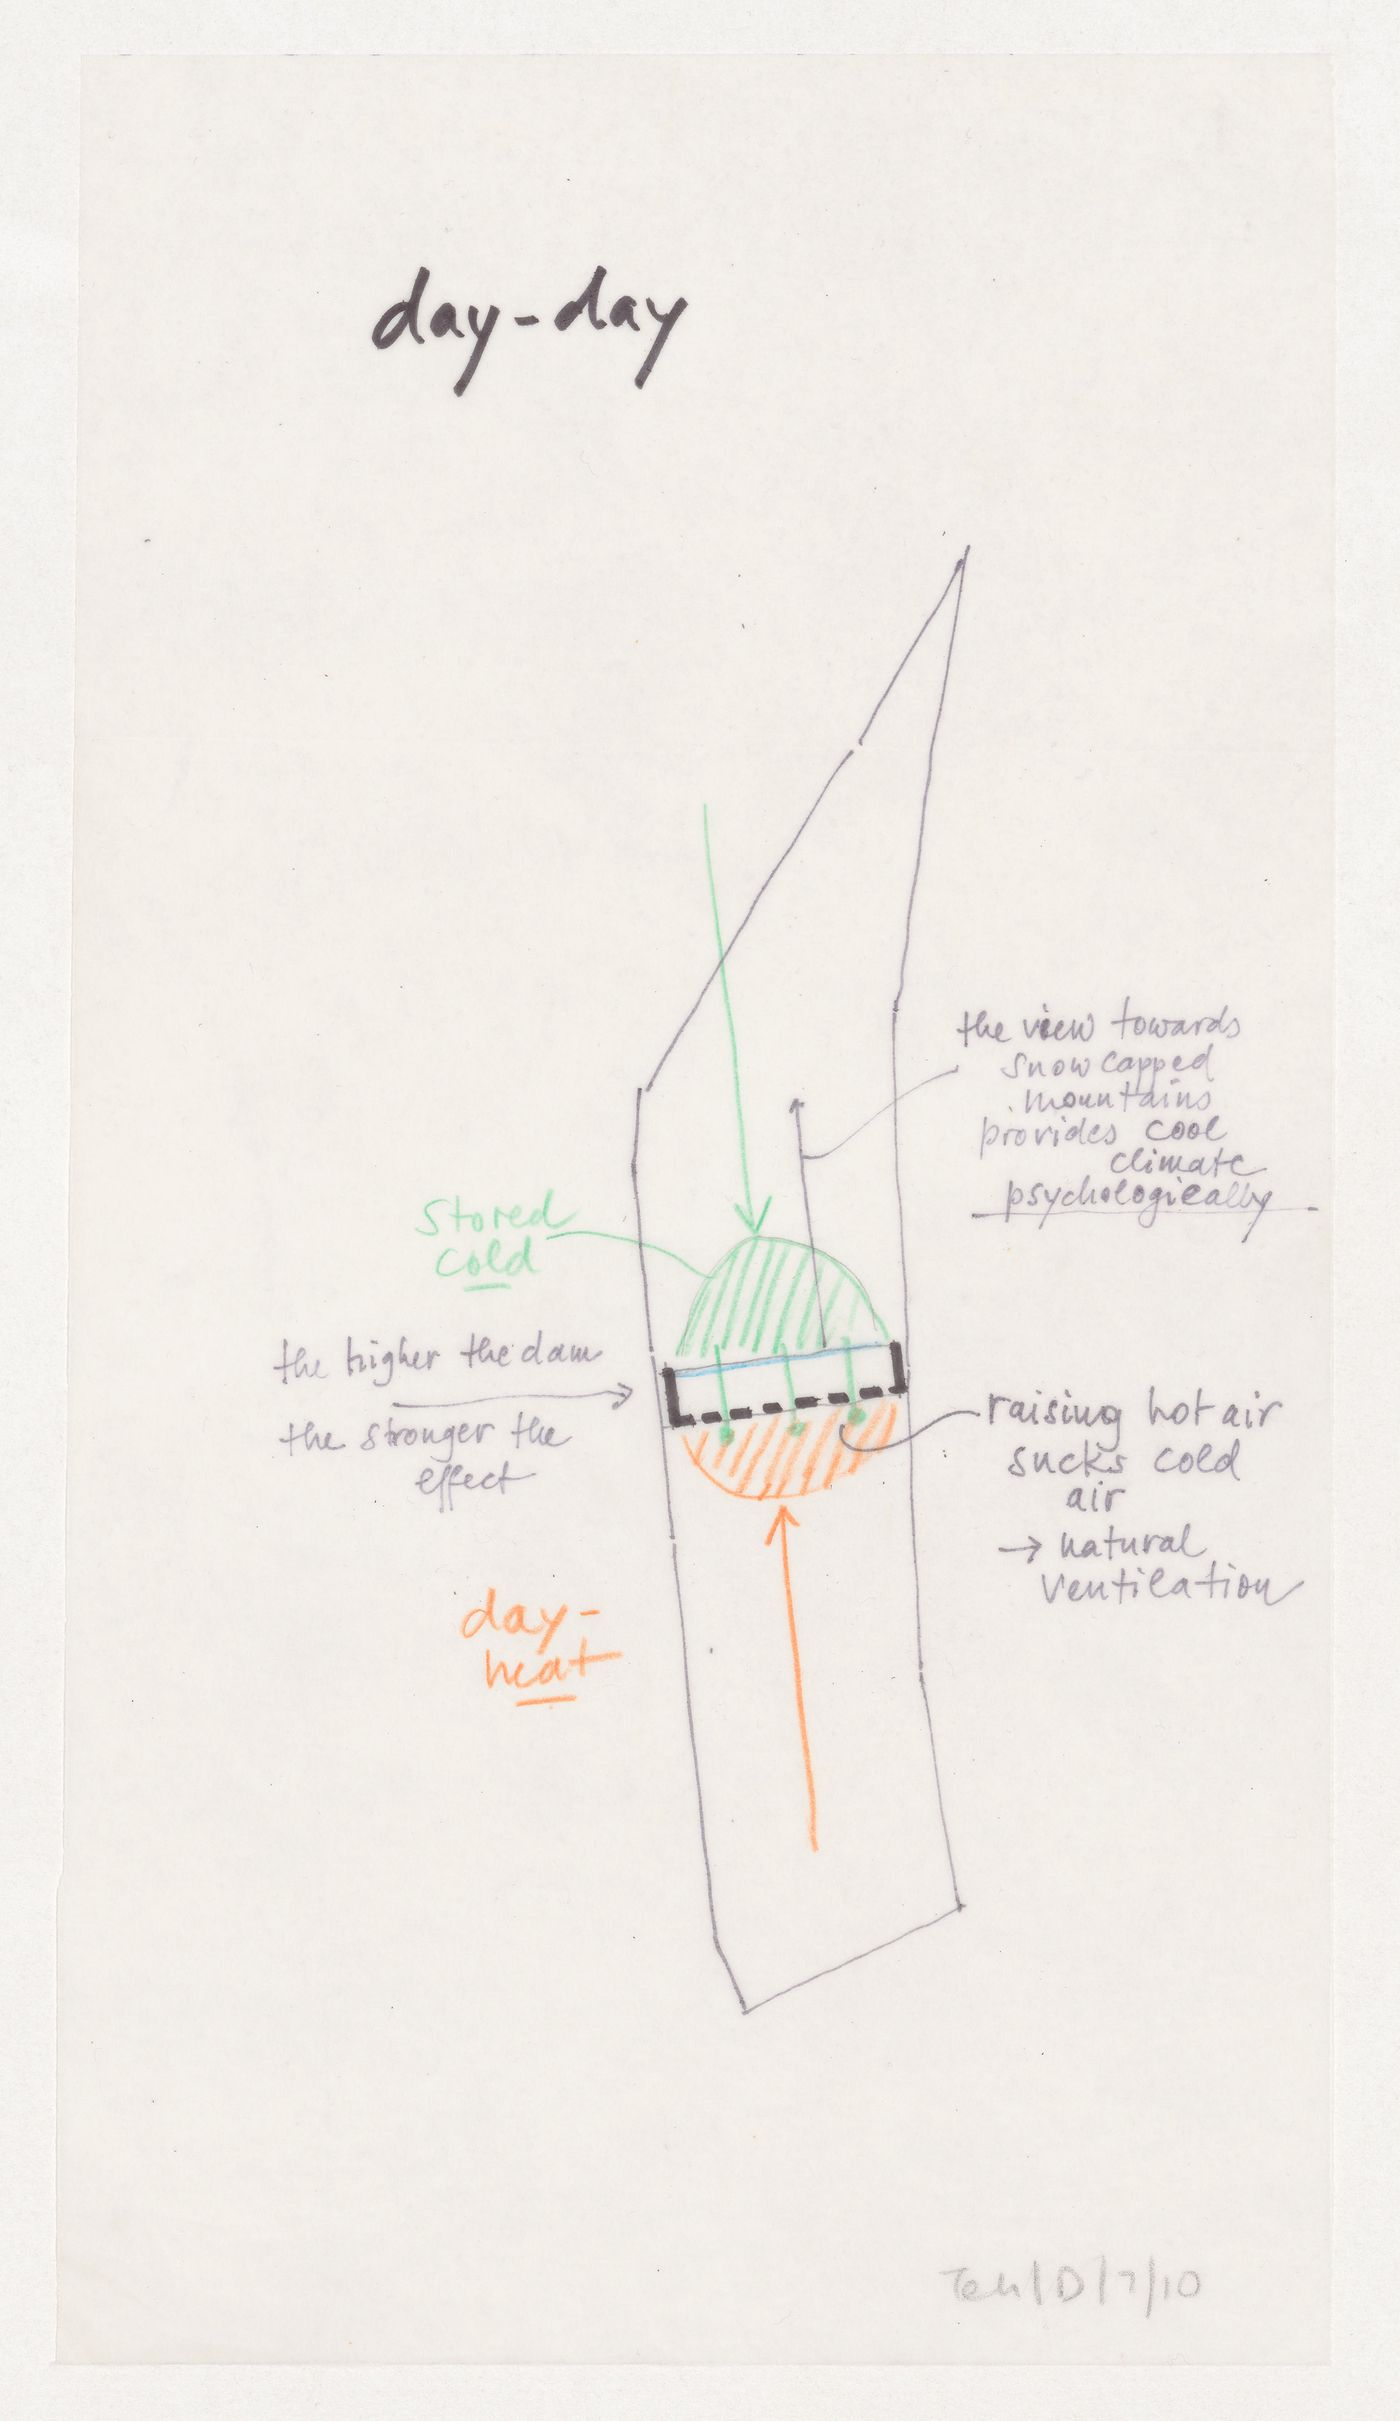 day-day
the view towards
snowcapped
mountains
provides cool
climate
psychologically
stored
cold
the higher the dam
the stronger the
effect
raising hot air
sucks cold
air
→ natural
ventilation
day-
heat
Teh/D/7/10